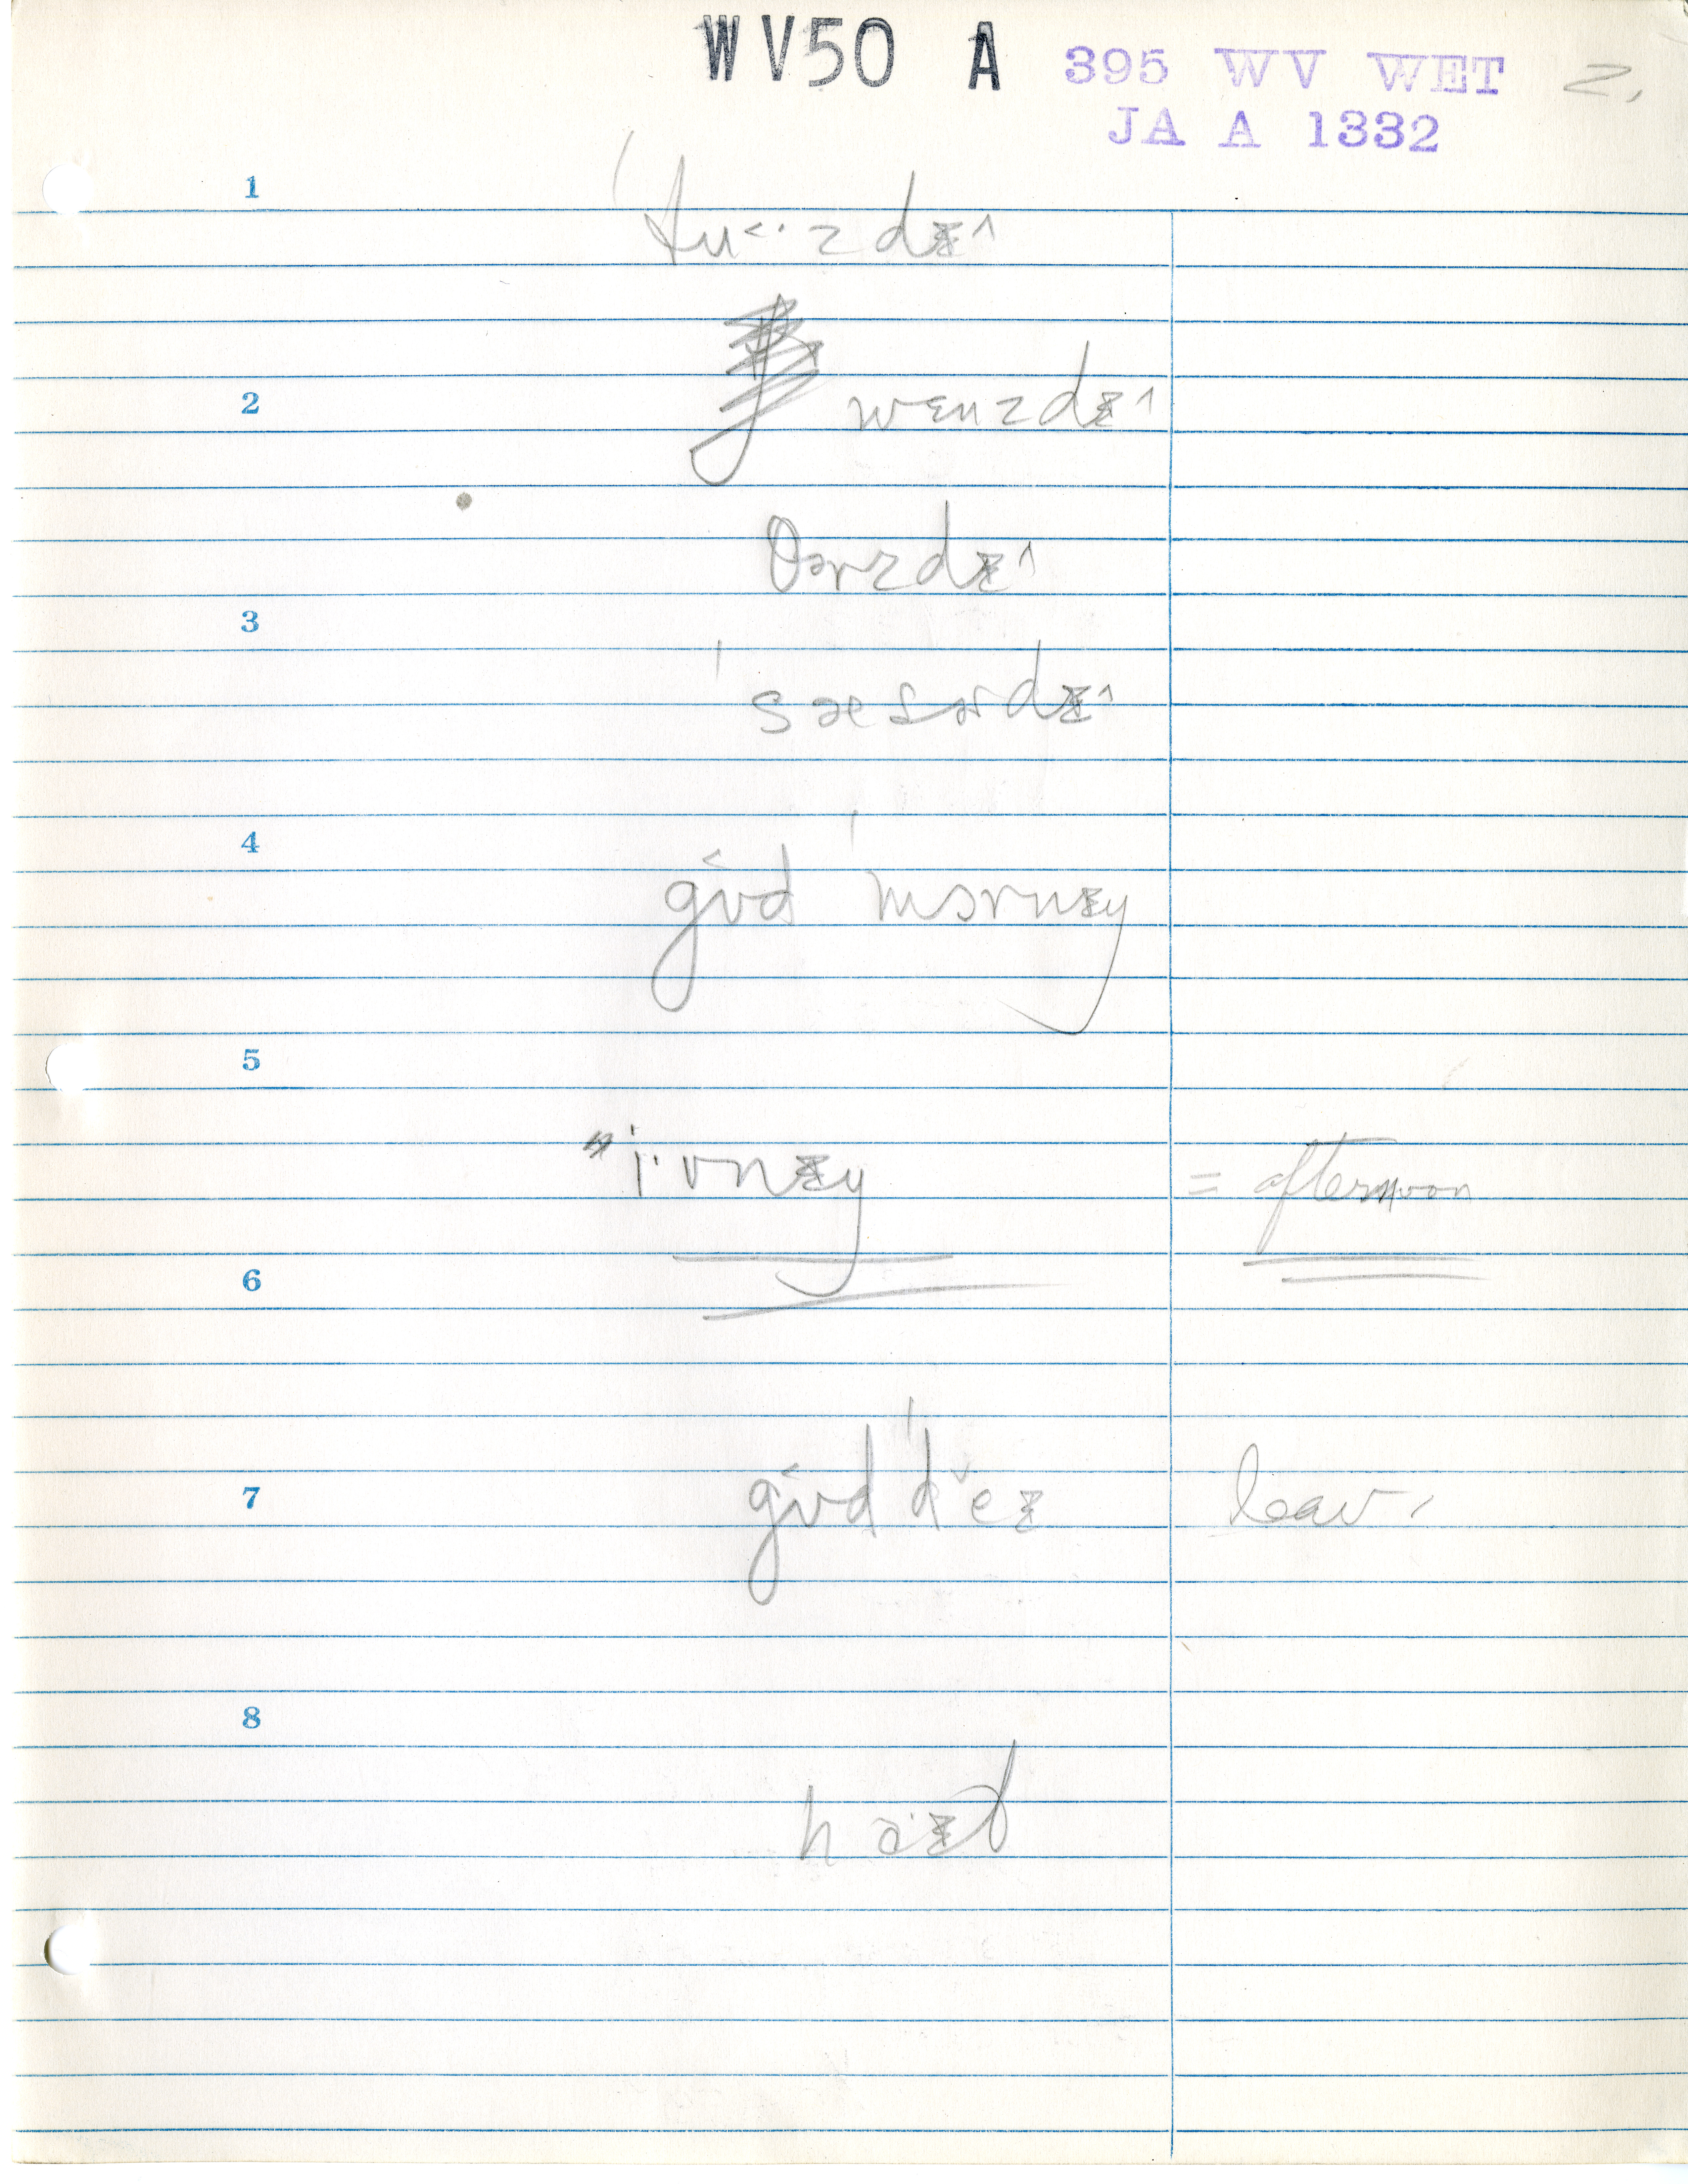 WV50 A 395 WV WET 2.
JA A 1332
1
ˈtu˂·zdɪ^
2 wɛnzdɪ^
θərzdɪ^
3
ˈsæsɚdɪ^
4
gʊ˂d ˈmɔrnɪŋ
5
"i·vnɪŋ = afternoon
6
gʊ˂d ˈd˅eɪ leav.
7
8